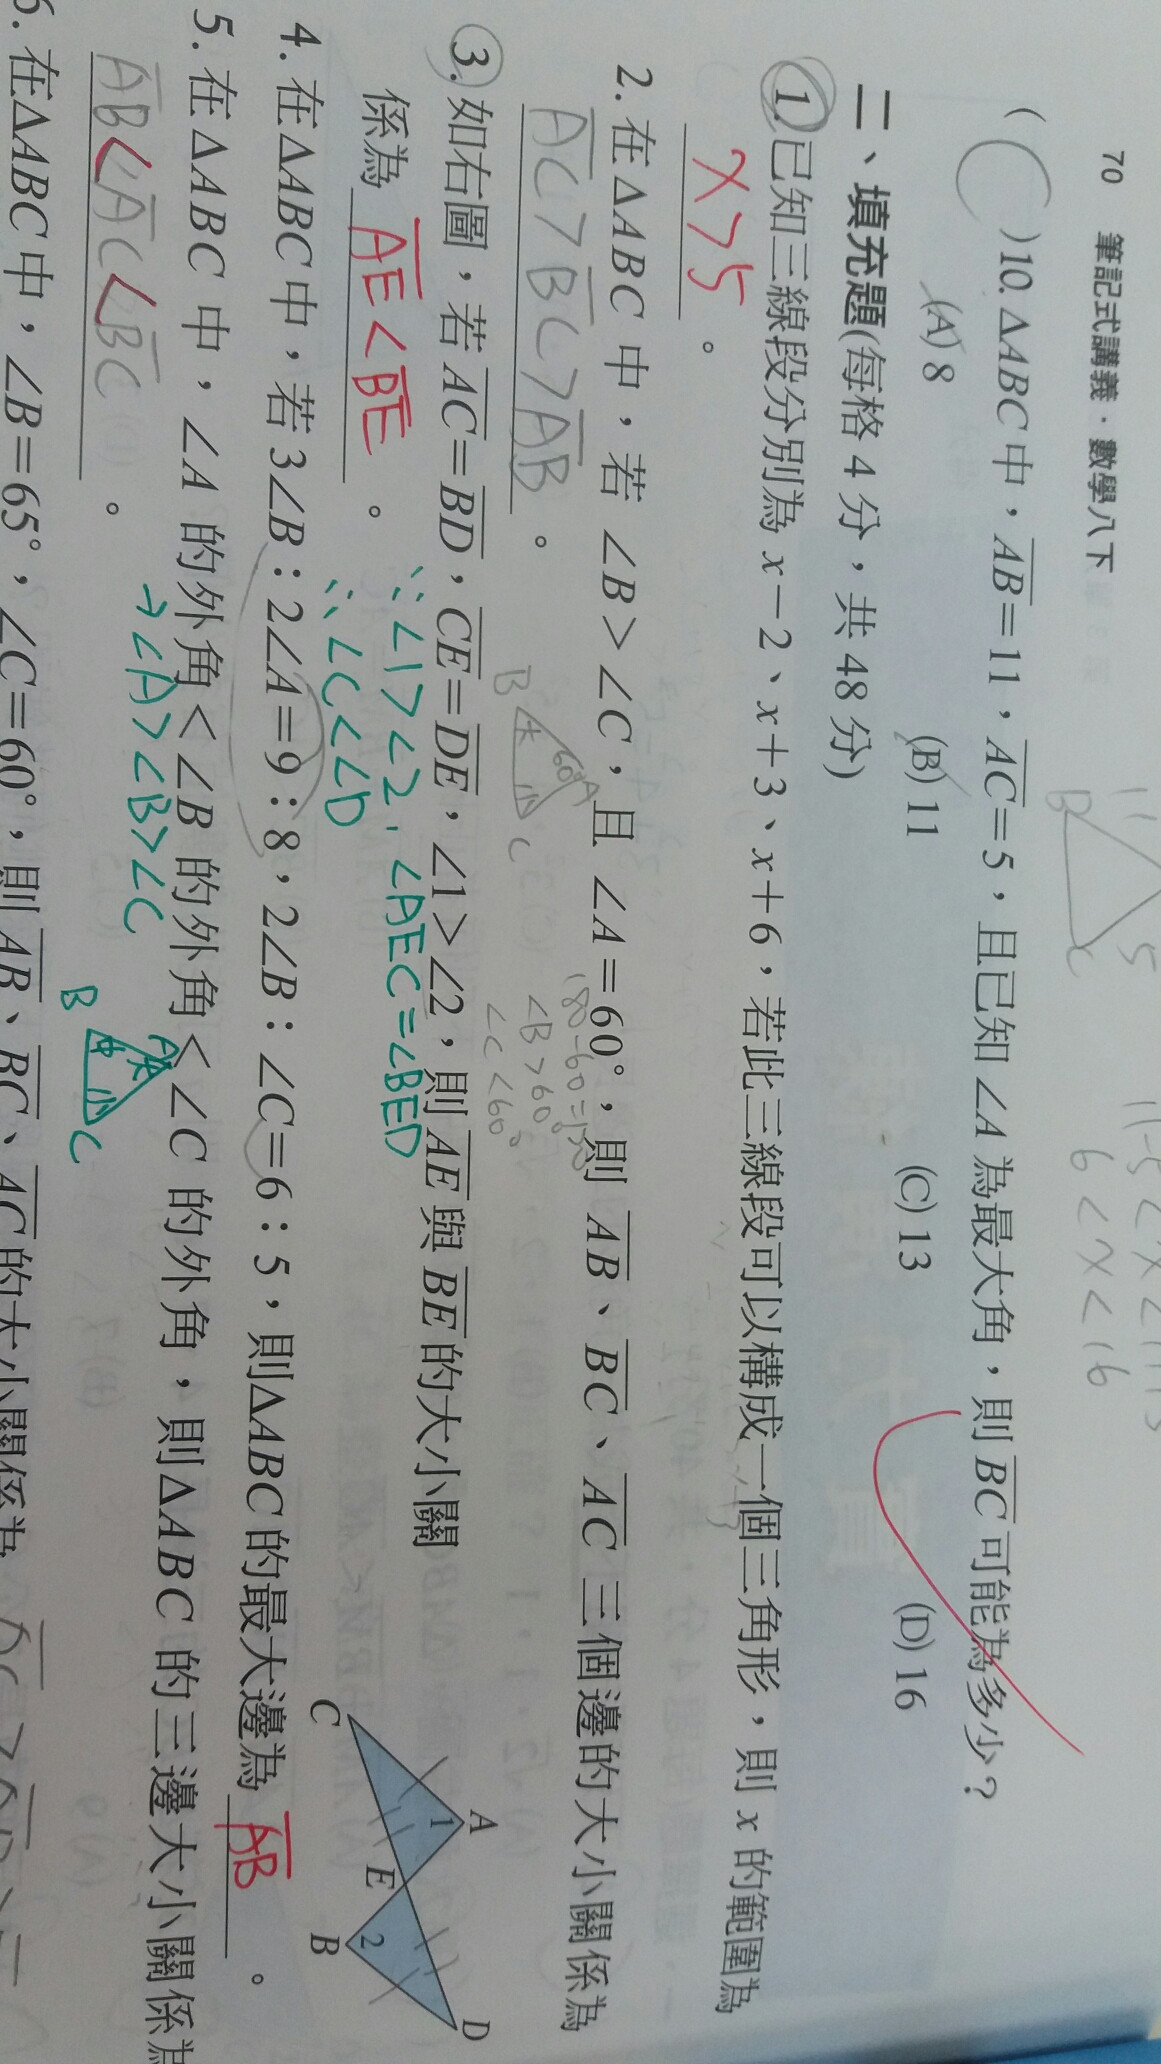 70 筆記式講義．數學八下
( )10. △ABC中，AB=11，AC=5，且已知∠A為最大角，則BC可能為多少？
(A) 8 (B) 11 (C) 13 (D) 16
B 11 5 C
6<x<16
二、填充題(每格4分，共48分)
1.已知三線段分別為x－2、x＋3、x＋6，若此三線段可以構成一個三角形，則x的範圍為
x>5。
2.在△ABC中，若∠B>∠C，且∠A=60°，則AB、BC、AC三個邊的大小關係為
AC>BC>AB。
B 大 60° A 小 C
∠B>60°
∠C<60°
3.如右圖，若AC=BD，CE=DE，∠1>∠2，則AE與BE的大小關
係為AE<BE。
∵∠1>∠2，∠AEC=∠BED
∴∠C<∠D
A 1 C E B 2 D
4.在△ABC中，若3∠B：2∠A=9：8，2∠B：∠C=6：5，則△ABC的最大邊為AB。
5.在△ABC中，∠A的外角<∠B的外角<∠C的外角，則△ABC的三邊大小關係為
AB<AC<BC。
→∠A>∠B>∠C
B 中 小 C
6.在△ABC中，∠B=65°，∠C=60°，則AB、BC、AC的大小關係為